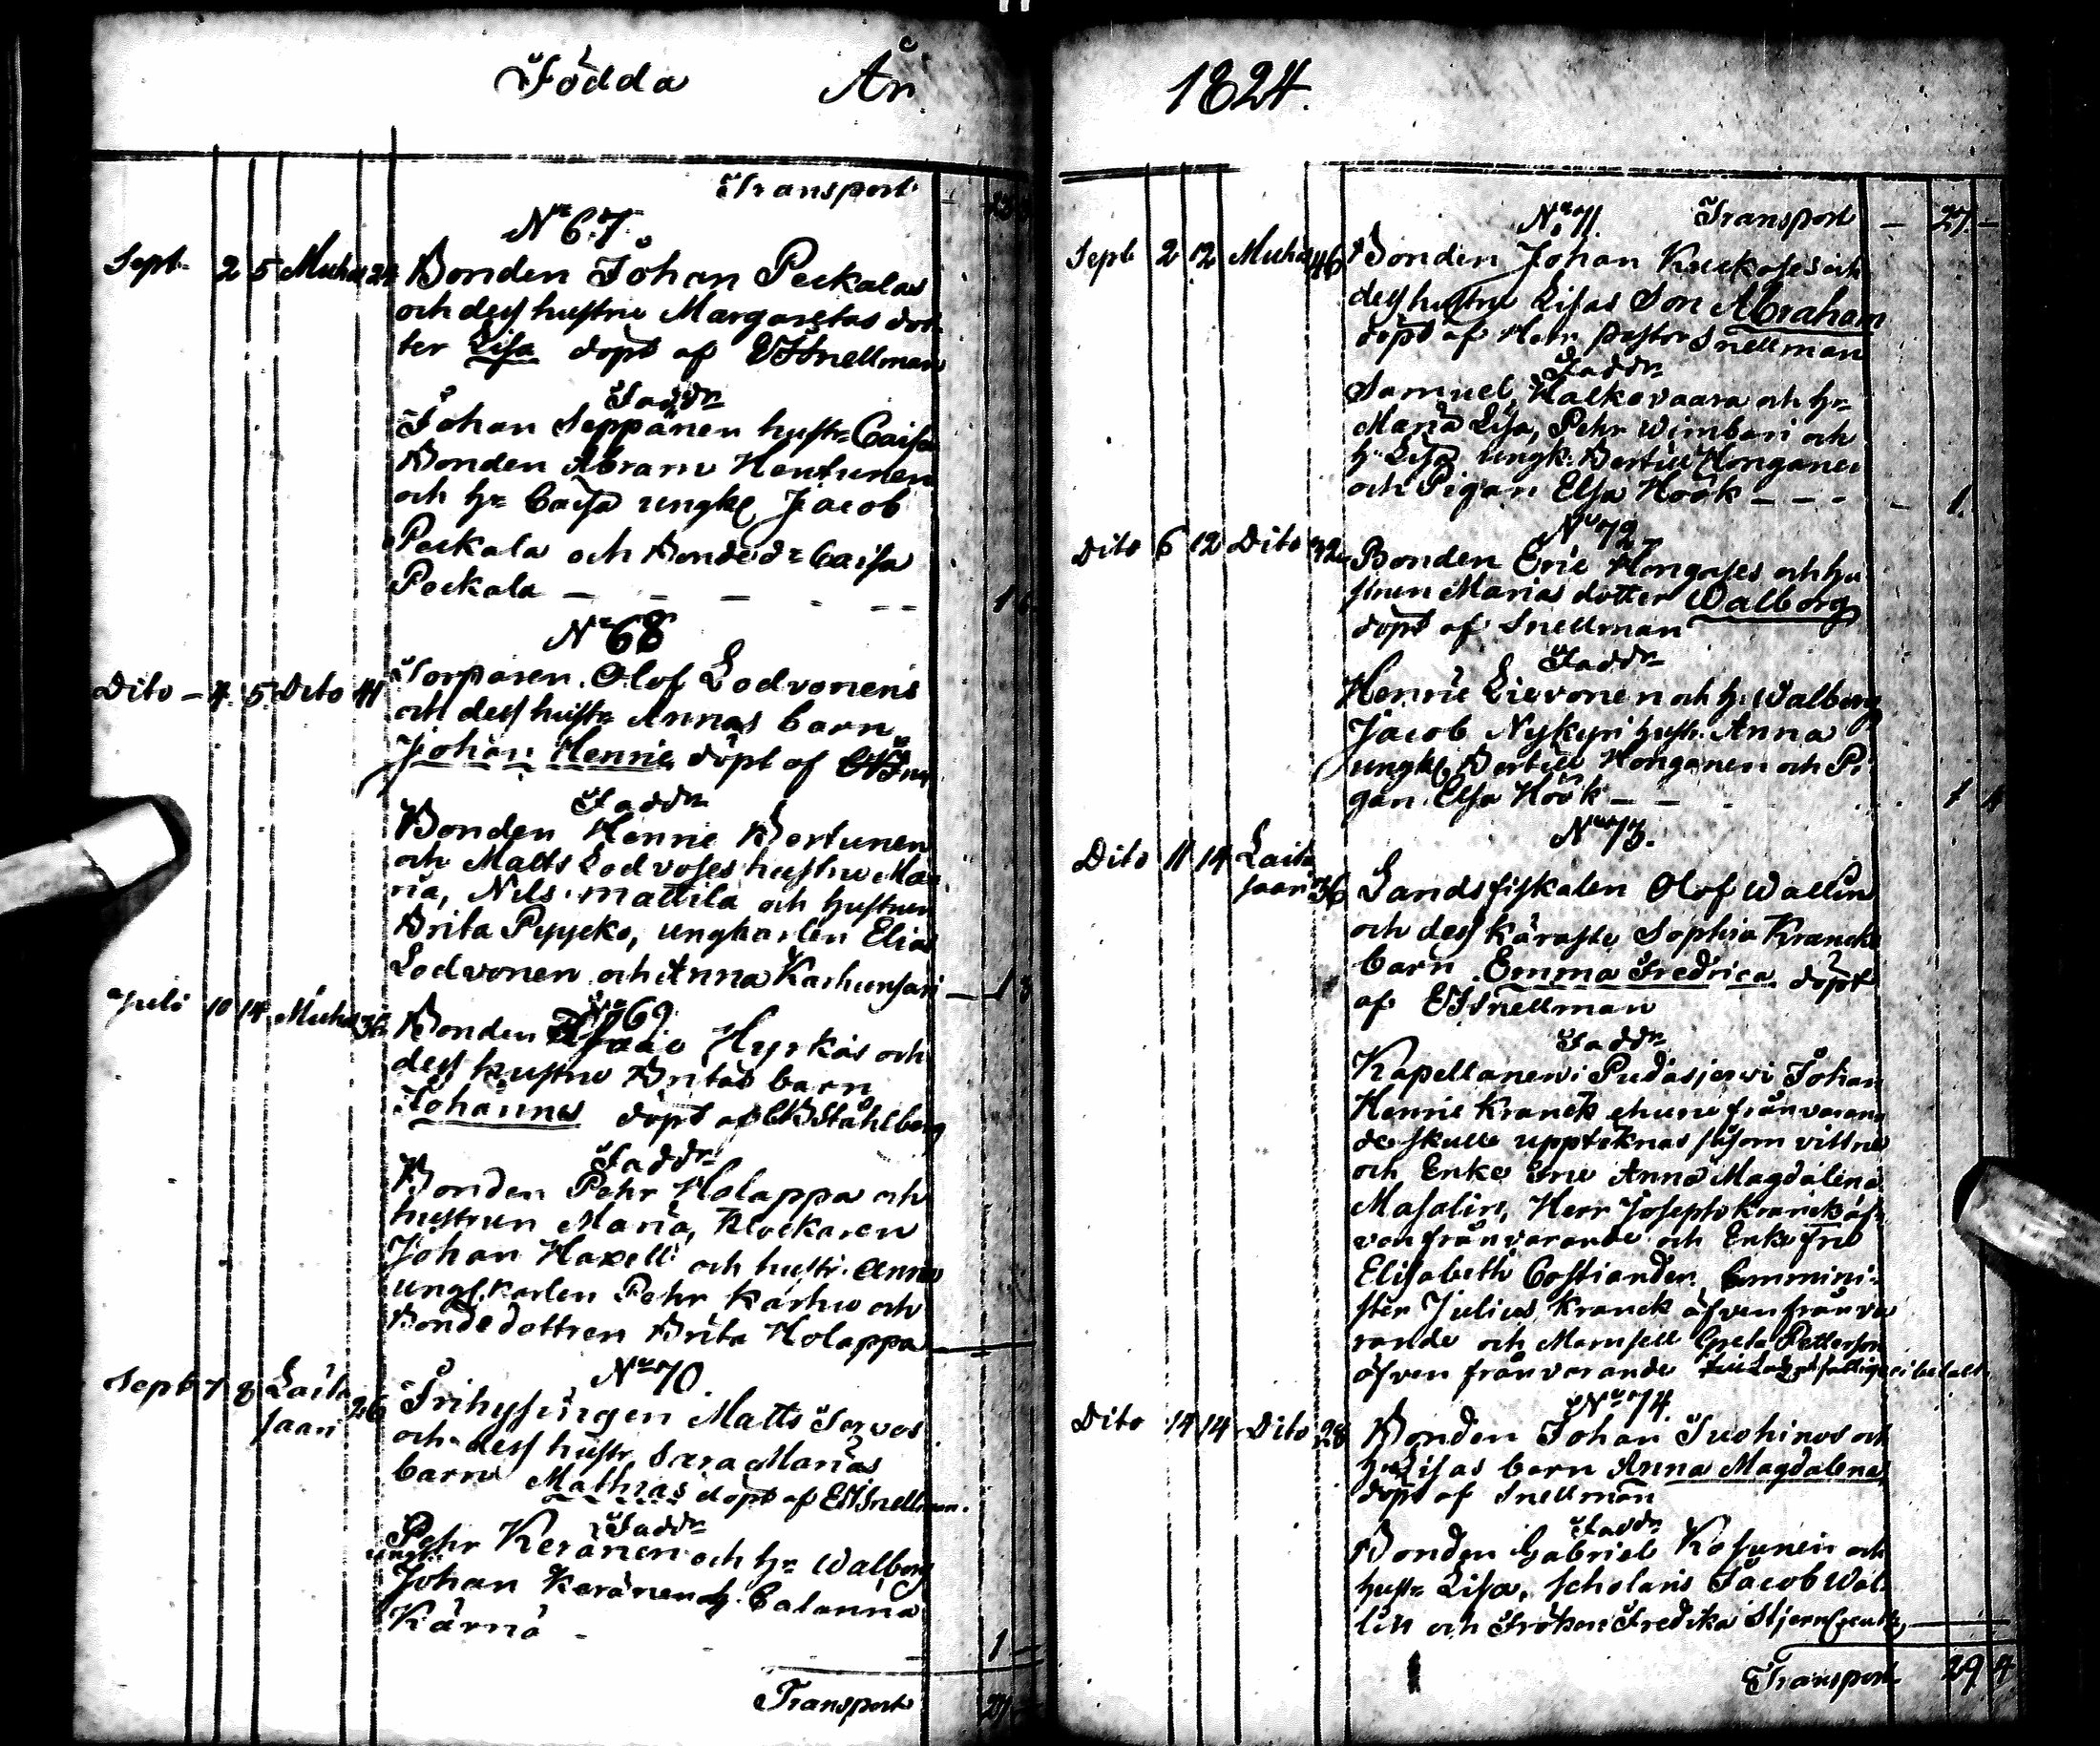 Födda År
Transport
N:o 67.
Sept. 2 5 Muhos 24 Bonden Johan Peckalas
och dess hustru Margaretas dot-
ter Lisa döpt af EHSnellman
Faddr
Johan Seppänen hustr: Caisa
Bonden Abram Hentunen
och hr Caisa ungk Jacob
Peckala och Bonded:r Caisa
Peckala — — — — — 1
N:o 68
Dito – 4. 5. Dito 41 Torparen Olof Lodvonens
och dess hustr Annas barn
Johan Henric döpt af
Faddr
Bonden Henric Bertunen
och Matts Lodvoses hustru Ma-
ria, Nils Mattila och hustrun
Brita Pyycko, ungkarlen Elias
Lodvonen och Anna Karhunsari — 1
N:o 69.
Juli 10 14 Muhos 36 Bonden Hyrkäs och
dess hustru Britas barn
Johannes döpt af Ståhlberg
Faddr
Bonden Pehr Holappa och
hustrun Maria, Klockaren
Johan Haxell och hustr. Anna
ungkarlen Pehr Karhu och
Bondedottren Brita Holappa —
N:o 70.
Sept 7 8 Laita
saari 26 Frihysingen Matts Servos
och dess hustr Sara Marias
barn Mathias döpt af EHSnellman.
Faddr
Pehr Keränen och hr Walborg
ungk:
Johan Keränen Catanna
Kärnä - 1 –
Transport 27
1824.
N:o 71. Transport — 27. –
Sept 2 12 Muhos 46 Bonden Johan Kuckoses och
dess hustru Lisas Son Abraham
döpt af Herr Pastor Snellman
Faddr
Samuel Halkovaara och hr
Maria Lisa, Pehr Wimbari och
hr Lisa ungk. Bertill Honganen
och Pigan Elsa Höök – – – 1.
N:o 72
Dito 6 12 Dito 32 Bonden Eric Hongases och hu
strun Marias dotter Walborg
döpt af Snellman
Faddr
Henric Lievonen och hr Walborg
Jacob Nykyri hustr. Anna
ungk Bertill Honganen och Pi-
gan Elsa Höök – – 1
N:o 73.
Dito 11 14 Laita
saari 36 Landsfiskalen Olof Wallin
och dess käraste Sophia Kranck
barn Emma Fredrica döpt
af EHSnellman
Faddr
Kapellanen i Pudasjerwi Johan
Henric Kranck ehuru frånvaran
de skulle uppteknas såsom vittne
och Enke Fru Anna Magdalena
Masalin, Herr Joseph Kranck äf-
ven frånvarande och Enke fru
Elisabeth Costiander. Commini-
ster Julius Kranck äfven frånva
rande och Mamsell Greta Petterson
äfven frånvarande ej betalt
N:o 74.
Dito 14 14 Dito 28 Bonden Johan Suohinos och
hr Lisas barn Anna Magdalena
döpt af Snellman
Faddr
Bonden Gabriel Kosunen och
hustr Lisa, Scholaris Jacob Wal-
lin och Fröken Fredika
Transport 29 4